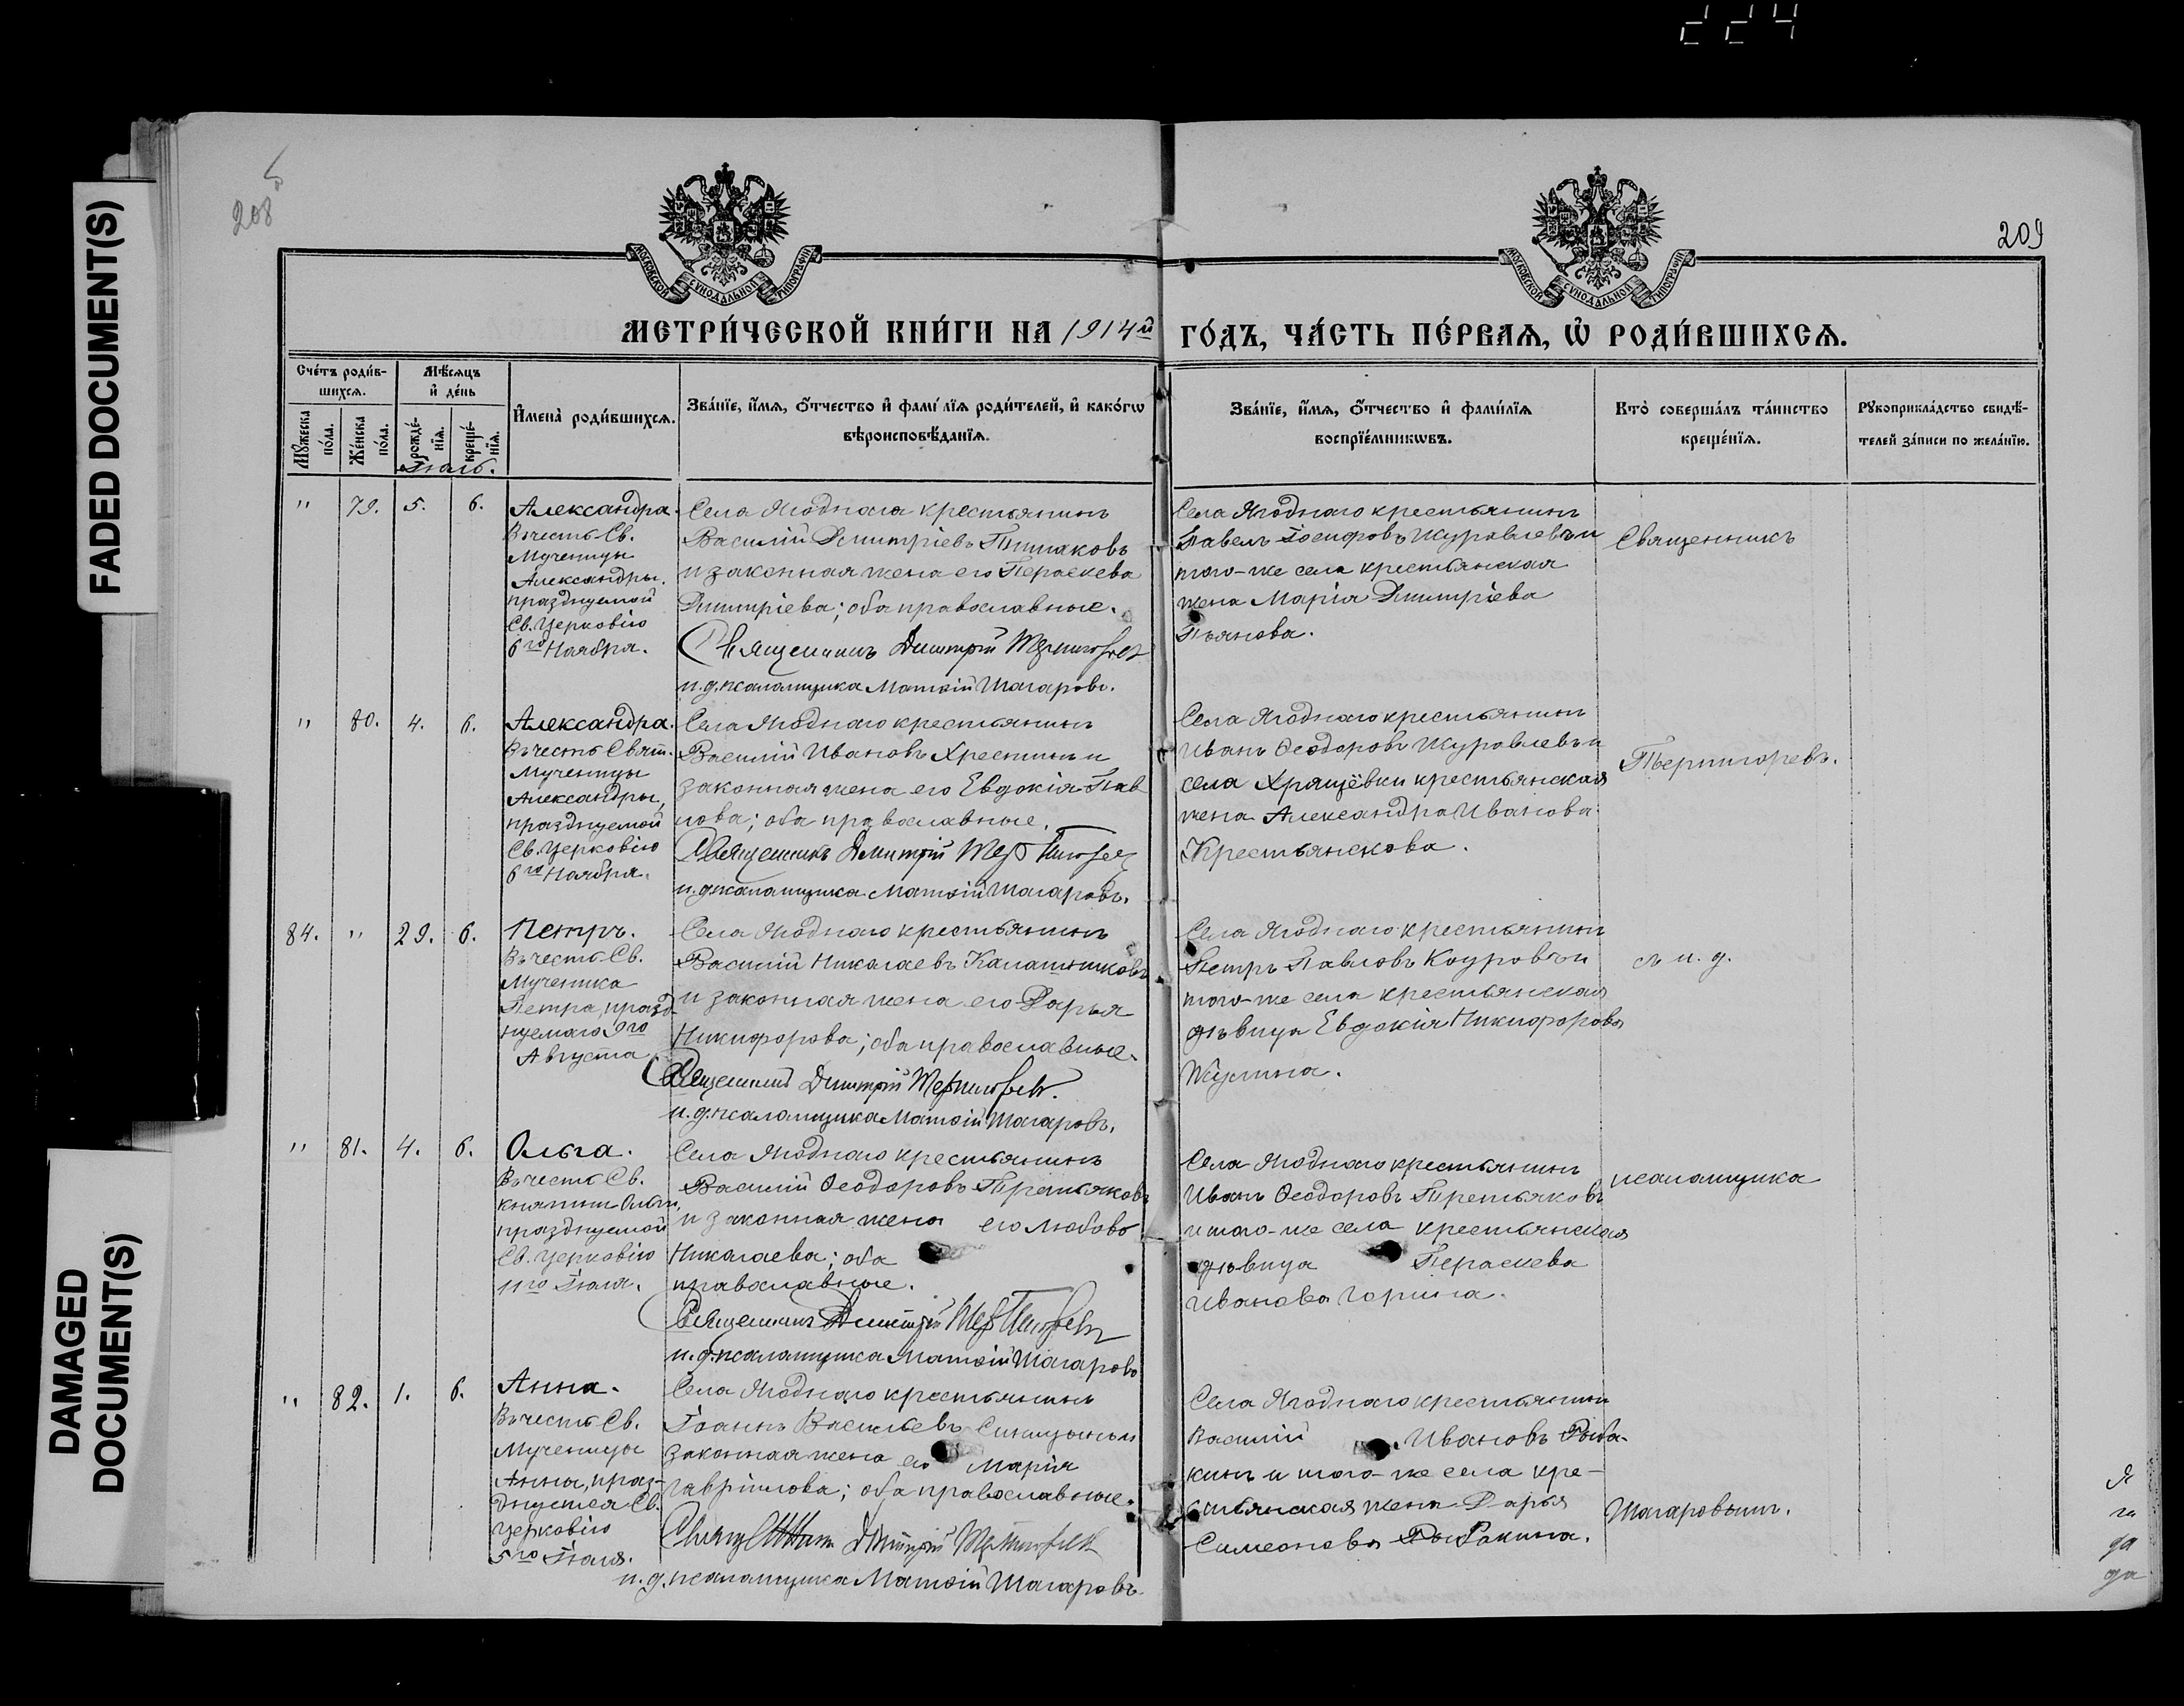 224
FADED DOCUMENT(S)
DAMAGED
DOCUMENT(S)
208
209
МОСКОВСКОЙ СѴНОДАЛЬНОЙ ТИПОГРАФІИ
МОСКОВСКОЙ СѴНОДАЛЬНОЙ ТИПОГРАФІИ
МЕТРИ́ЧЕСКОЙ КНИ́ГИ НА 1914й ГО́ДЪ, ЧА́СТЬ ПЕ́РВАѦ, Ѡ҆ РОДИ́ВШИХСѦ.
Сче́тъ роди́в-
шихсѧ.
Мꙋ́жеска
по́ла.
Же́нска
по́ла.
Мѣ́сѧцъ
и҆ де́нь
рожде́-
нїѧ.
креще́-
нїѧ.
Іюль.
И҆мена̀ роди́вшихсѧ.
Зва́нїе, и҆́мѧ, ѻ҆́тчество и҆ фамі́лїѧ роди́телей, и҆ како́гѡ
вѣроисповѣ́данїѧ.
Зва́нїе, и҆́мѧ, ѻ҆́тчество и҆ фами́лїѧ
воспрїе́мникѡвъ.
Кто̀ соверша́лъ та́инство
креще́нїѧ.
Рꙋкоприкла́дство свидѣ́-
телей за́писи по жела́нїю.
" 79. 5. 6.
Александра.
Въ честь Св.
Мученицы
Александры,
празднуемой
Св. Церковію
6го Ноября.
Села Ягоднаго крестьянинъ
Василій Димитріевъ
и законная жена его Параскева
Димитріева; оба православные.
Священникъ Димитрій
и. д. псаломщика Матѳій Шагаровъ.
Села Ягоднаго крестьянинъ
Павелъ Іосифовъ Журавлевъ и
того-же села крестьянская
жена Марія Димитріева
Пьянова.
Священникъ
" 80. 4. 6.
Александра.
Въ честь Свят.
Мученицы
Александры,
празднуемой
Св. Церковію
6го Ноября.
Села Ягоднаго крестьянинъ
Василій Ивановъ Хрестинъ и
законная жена его Евдокія Пав
лова; оба православные.
Священникъ Димитрій
и. д. псаломщика Матѳій Шагаровъ.
Села Ягоднаго крестьянинъ
Иванъ Ѳеодоровъ Журавлевъ и
села Хрящёвки крестьянская
жена Александра Иванова
Крестьянскова.
84. " 29. 6.
Петръ.
Въ честь Св.
Мученика
Петра, празд-
нуемаго 9го
Августа
Села Ягоднаго крестьянинъ
Василій Николаевъ Калашниковъ
и законная жена его Дарья
Никифорова; оба православные.
Священникъ Димитрій
и. д. псаломщика Матѳій Шагаровъ.
Села Ягоднаго крестьянинъ
Петръ Павловъ Кауровъ и
того-же села крестьянская
дѣвица Евдокія Никифорова
Жулина.
съ и. д.
" 81. 4. 6.
Ольга.
Въ честь Св.
княгини Ольги,
празднуемой
Св. Церковію
11го Іюля.
Села Ягоднаго крестьянинъ
Василій Ѳеодоровъ Третьяковъ
и законная жена его Любовь
Николаева; оба
православные.
Священникъ Димитрій
и. д. псаломщика Матѳій Шагаровъ
Села Ягоднаго крестьянинъ
Иванъ Ѳеодоровъ Третьяковъ
и того-же села крестьянская
дѣвица Параскева
Иванова Горина.
псаломщика
" 82. 1. 6.
Анна.
Въ честь Св.
Мученицы
Анны, праз-
днуется Св.
Церковію
5го Іюля.
Села Ягоднаго крестьянинъ
Іоаннъ Васильевъ Синицынъ и
законная жена его Марія
Гавріилова; оба православные.
Священникъ Димитрій
и. д. псаломщика Матѳій Шагаровъ.
Села Ягоднаго крестьянинъ
Василій Ивановъ Рыба-
кинъ и того-же села кре-
стьянская жена Дарья
Симеонова Рыбакина.
Шагаровымъ.